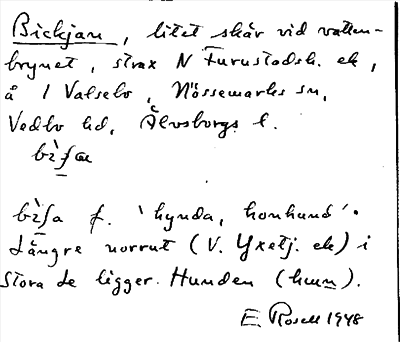 Bickjan, litet skär vid vatten-
brynet, strax N Furustadsh. ek,
å 1 Valsebo, Nössemarks sn,
Vedbo hd, Älvsborgs l.
bìʃa
bìʃa f. 'hynda, honhund'.
Längre norrut (V. Yxetj. ek) i
Stora Le ligger Hunden (hunn).
E. Rosell 1948